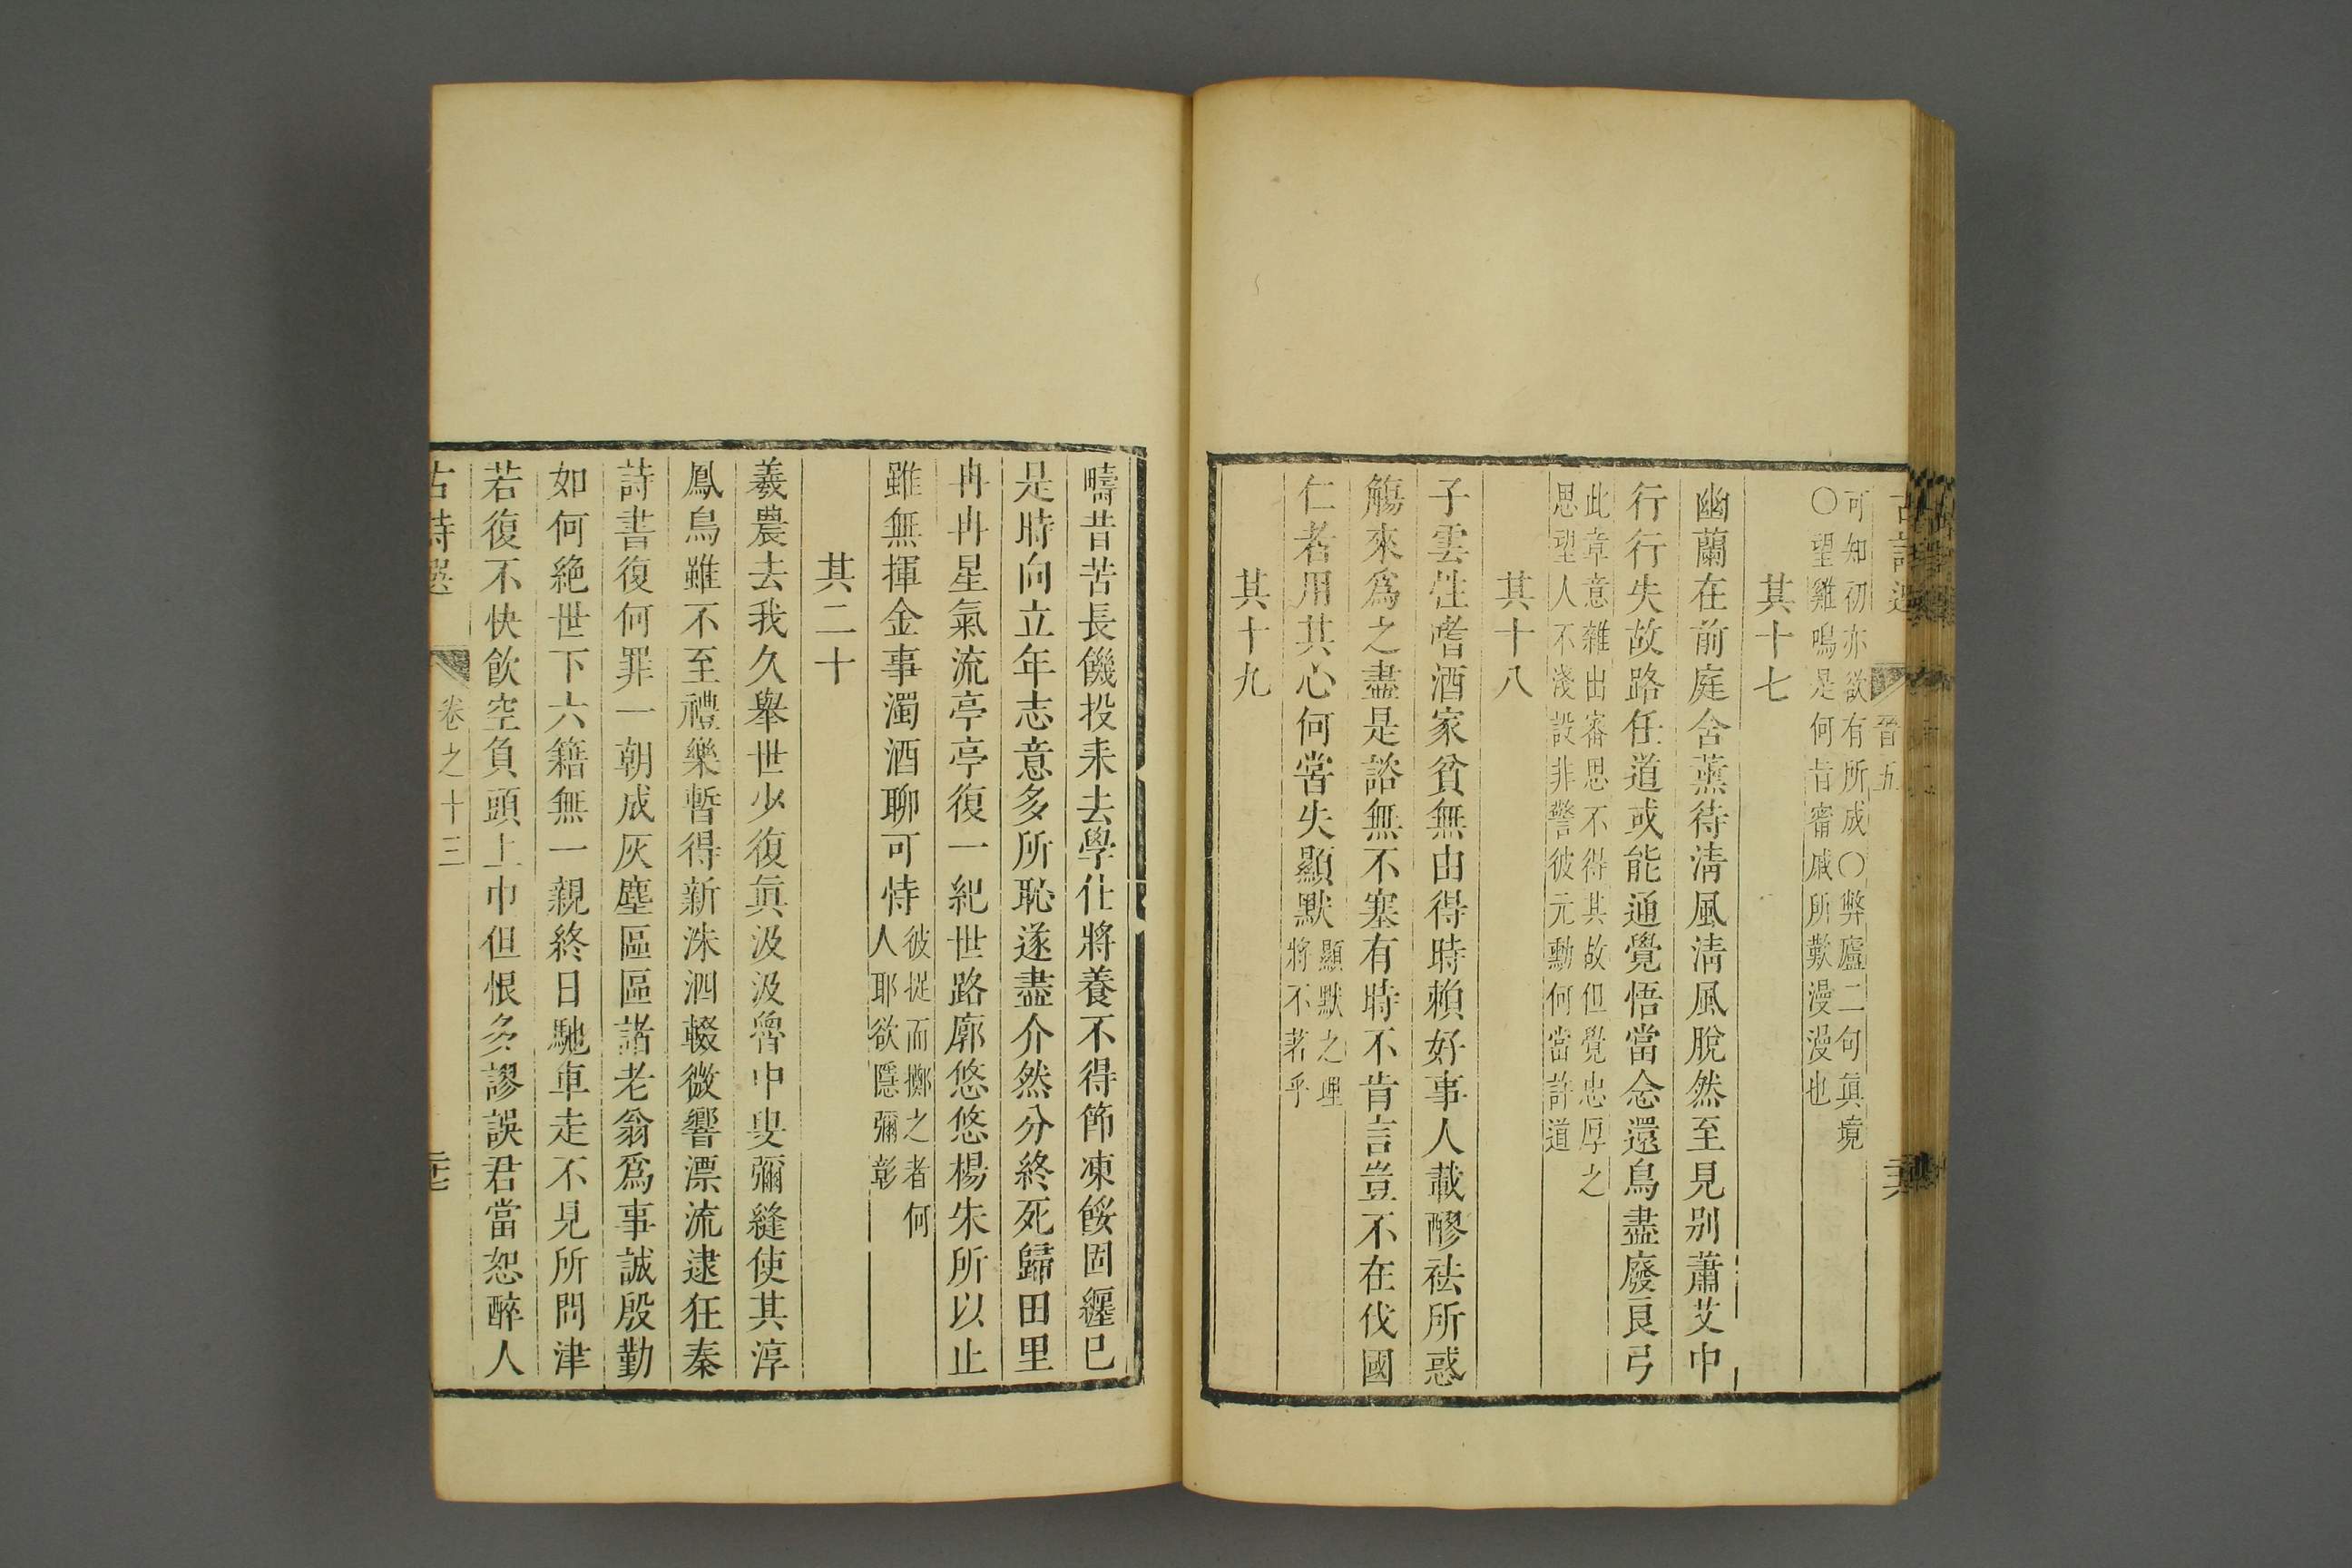 古詩選
晉五
可知初亦欲有所成〇弊廬二句眞境
〇望雞鳴是何旨甯戚所歎漫漫也
其十七
幽蘭在前庭含薰待淸風淸風脫然至見别蕭艾中
行行失故路任道或能通覺悟當念還鳥盡廢良弓
此章意雜出審思不得其故但覺忠厚之
思望人不淺設非警彼元勳何當許道
其十八
子雲性嗜酒家貧無由得時賴好事人載醪祛所惑
觴來爲之盡是諮無不塞有時不肯言豈不在伐國
仁者用其心何嘗失顯默
顯默之理
將不著乎
其十九
疇昔苦長饑投耒去學仕將養不得節凍餒固纏已
是時向立年志意多所恥遂盡介然分終死歸田里
冉冉星氣流亭亭復一紀世路廓悠悠楊朱所以止
雖無揮金事濁酒聊可恃
彼從而擲之者何
人耶欲隱彌彰
其二十
羲農去我久舉世少復眞汲汲魯中叟彌縫使其淳
鳳鳥雖不至禮樂暫得新洙泗輟微響漂流逮狂秦
詩書復何罪一朝成灰塵區區諸老翁爲事誠殷勤
如何絶世下六籍無一親終日馳車走不見所問津
若復不快飲空負頭上巾但恨多謬誤君當恕醉人
古詩選
卷之十三